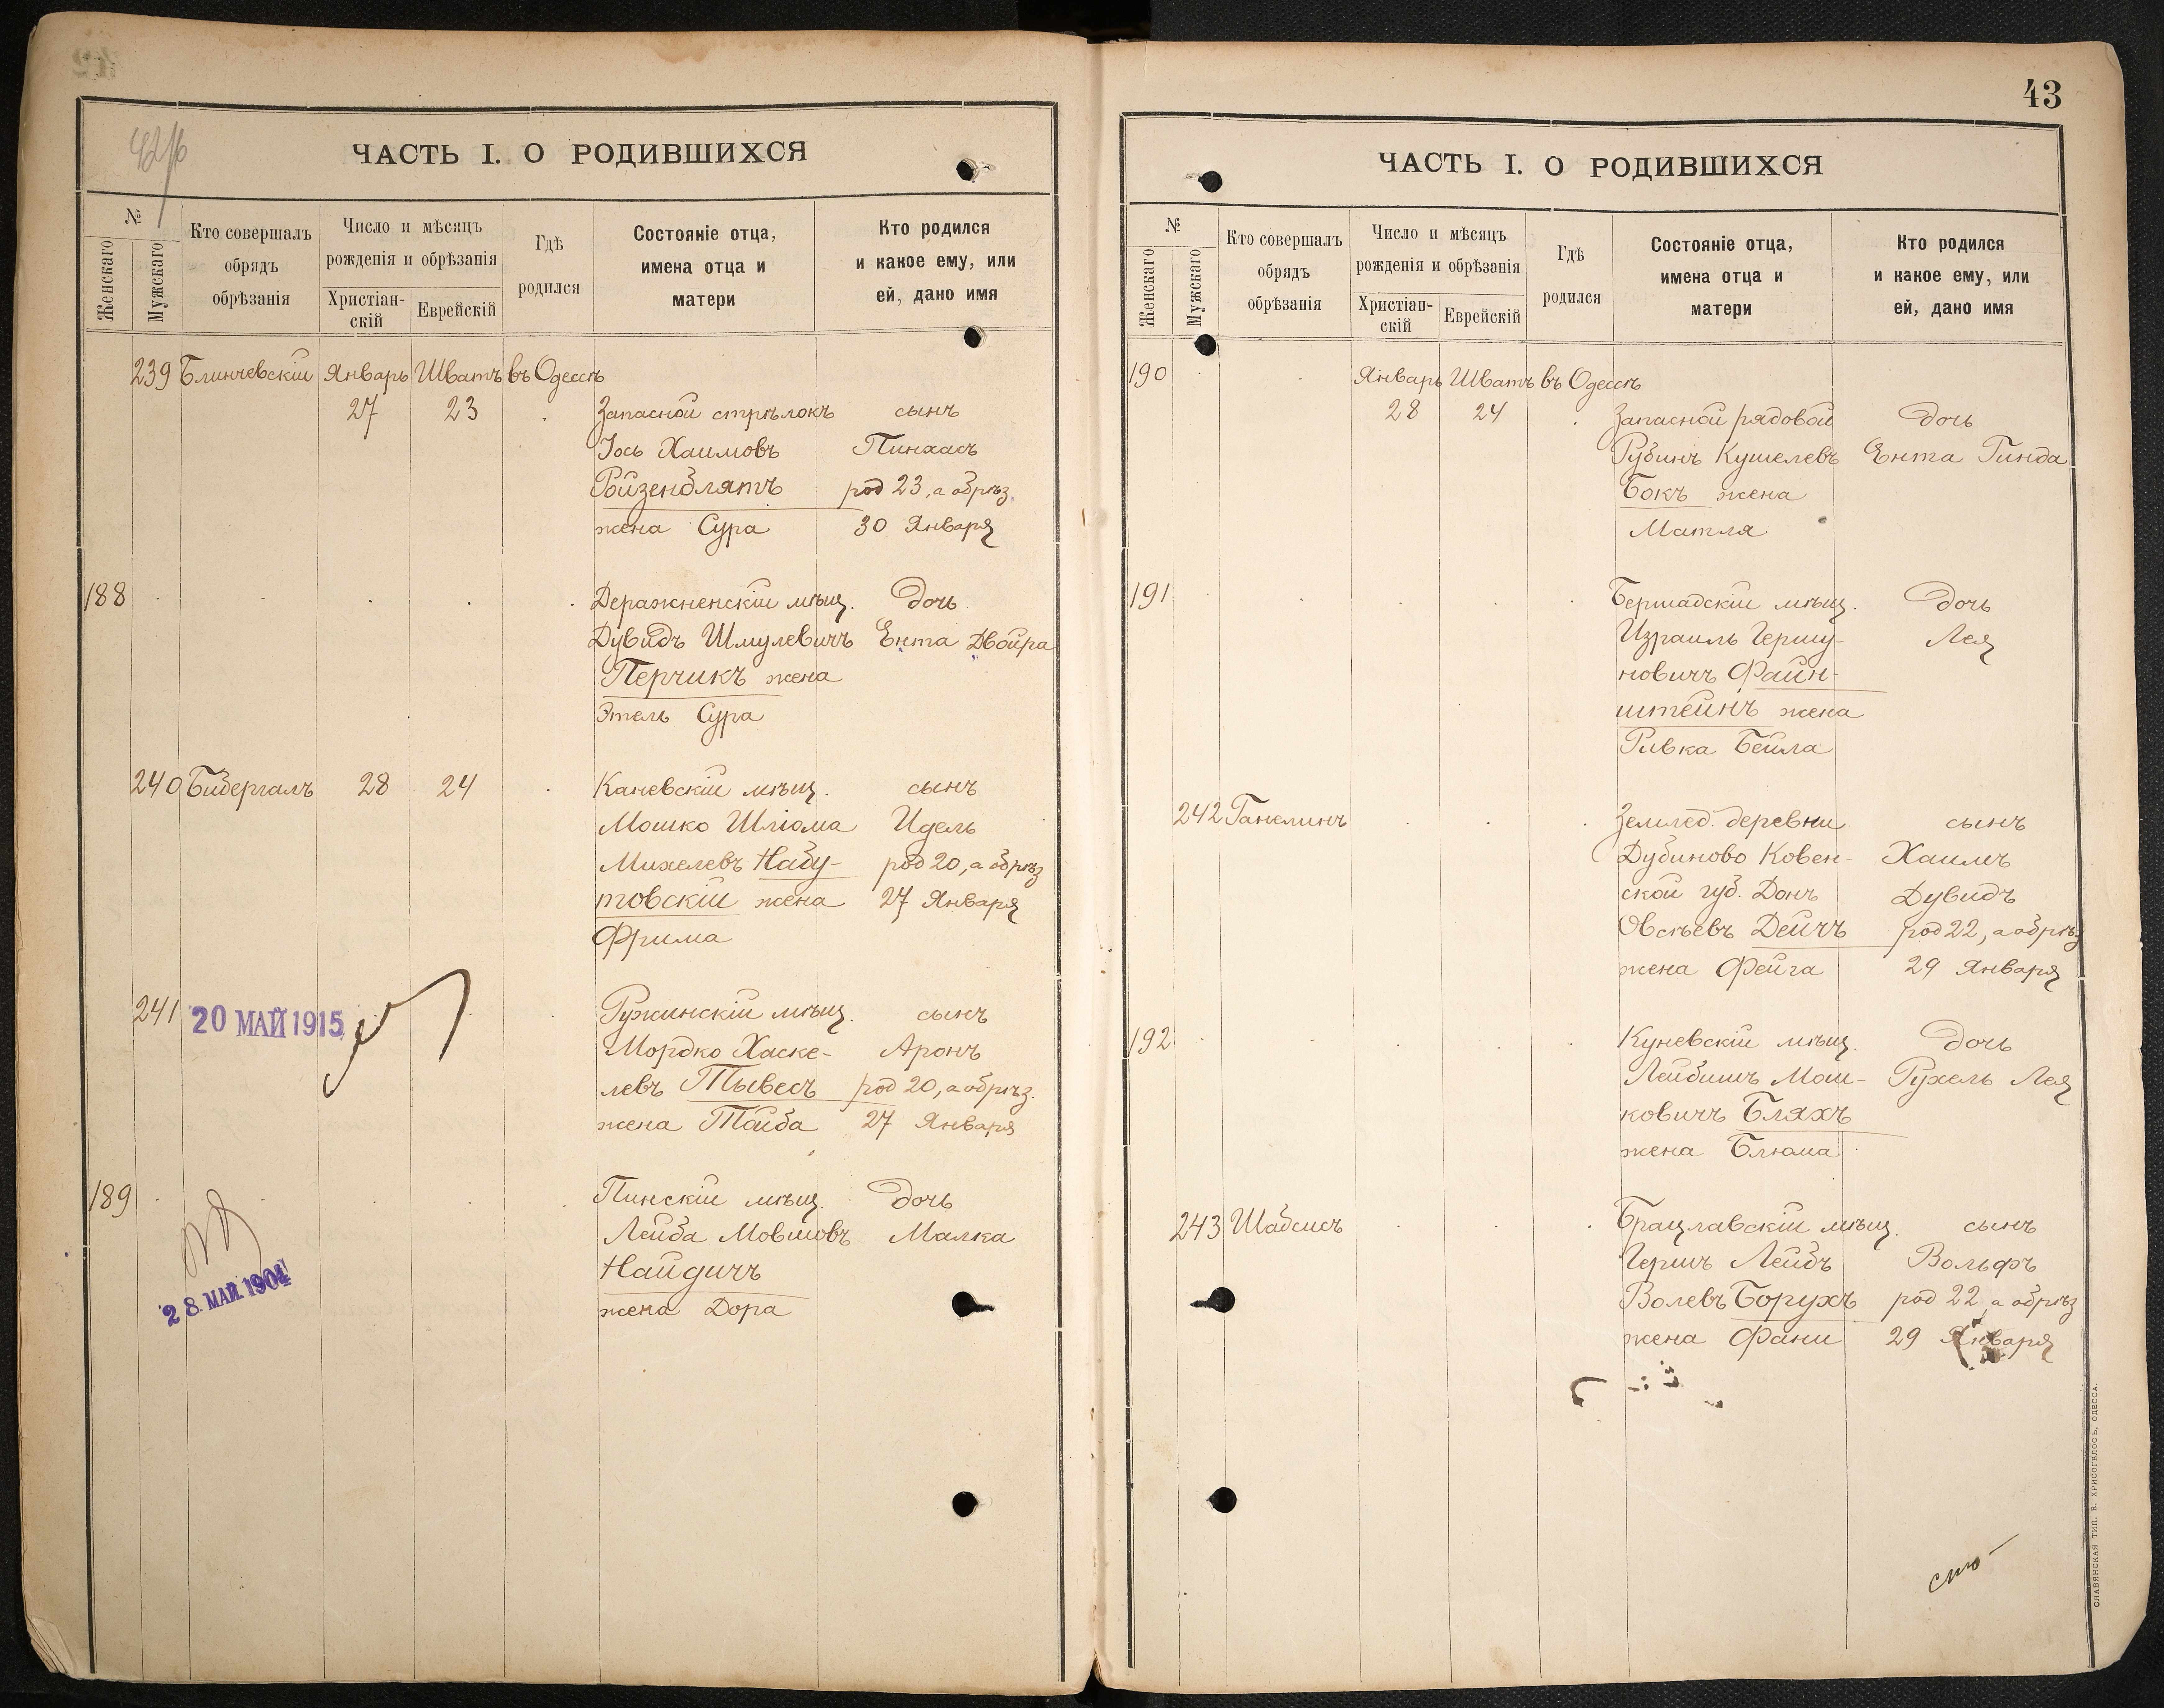 42об
ЧАСТЬ I. О РОДИВШИХСЯ
№
Женскаго
Мужскаго
Кто совершалъ
обрядъ
обрѣзанія
Число и мѣсяцъ
рожденія и обрѣзанія
Христіан-
скій
Еврейскій
Гдѣ
родился
Состояніе отца,
имена отца и
матери
Кто родился
и какое ему, или
ей, дано имя
239 Блинчевскій Январь Шватъ въ Одессѣ
27 23 Запасной стрѣлокъ сынъ
Іось Хаимовъ Пинхасъ
Ройзенблятъ род 23, а обрѣз.
жена Сура 30 Января
188 Деражненскій мѣщ. дочь
Дувидъ Шмулевичъ Ента Двойра
Перчикъ жена
Этель Сура
240 Бидергалъ 28 24 Каневскій мѣщ. сынъ
Мошко Шліома Идель
Михелевъ Набу- род 20, а обрѣз
товскій жена 27 Января
Фрима
241 20 МАЙ 1915 Ружинскій мѣщ. сынъ
Мордко Хаске- Аронъ
левъ Тывесъ род 20, а обрѣз.
жена Тойба 27 Января
189 Пинскій мѣщ. дочь
Лейба Мовшовъ Малка
Найдичъ
28. МАР. 1904
жена Дора
43
ЧАСТЬ I. О РОДИВШИХСЯ
№
Женскаго
Мужскаго
Кто совершалъ
обрядъ
обрѣзанія
Число и мѣсяцъ
рожденія и обрѣзанія
Христіан-
скій
Еврейскій
Гдѣ
родился
Состояніе отца,
имена отца и
матери
Кто родился
и какое ему, или
ей, дано имя
190 Январь Шватъ въ Одессѣ
28 24 Запасной рядовой дочь
Рубинъ Кушелевъ Ента Гинда
Бокъ жена
Матля
191 Бершадскій мѣщ. дочь
Израиль Гершу- Лея
новичъ Файн-
штейнъ жена
Ривка Бейла
242 Ганелинъ Землед. деревни сынъ
Дубиново Ковен- Хаимъ
ской губ. Донъ Дувидъ
Овсѣевъ Дейчъ род 22, а обрѣз
жена Фейга 29 Января
192 Куневскій мѣщ. дочь
Лейбишъ Мош- Рухель Лея
ковичъ Бляхъ
жена Блюма
243 Шабсисъ Брацлавскій мѣщ. сынъ
Гершъ Лейбъ Вольфъ
Волевъ Борухъ род 22, а обрѣз
жена Фани 29 Января
СЛАВЯНСКАЯ ТИП. Е. ХРИСОГЕЛОСЪ, ОДЕССА.